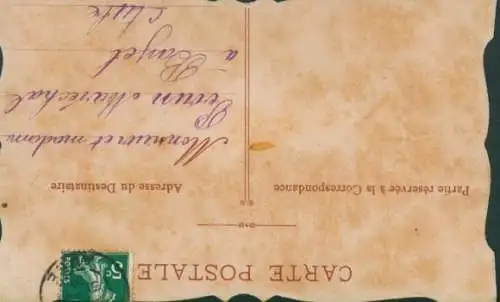 CARTE POSTALE
Partie réservée à la Correspondance
Adresse du Destinataire
Monsieur et madame
Perrun Maréchal
à
5c
POSTES